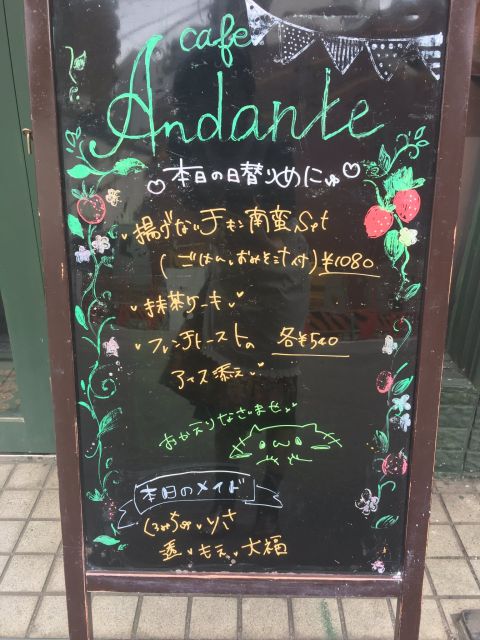 cafe
Andante
本日の日替りめにゅ
揚げないチキン南蛮Set
(ごはん、おみそ汁付) ¥1080
抹茶ケーキ
フレンチトーストの 各¥540
アイス添え
おかえりなさいませ
本日のメイド
りさ
透 もえ 大福